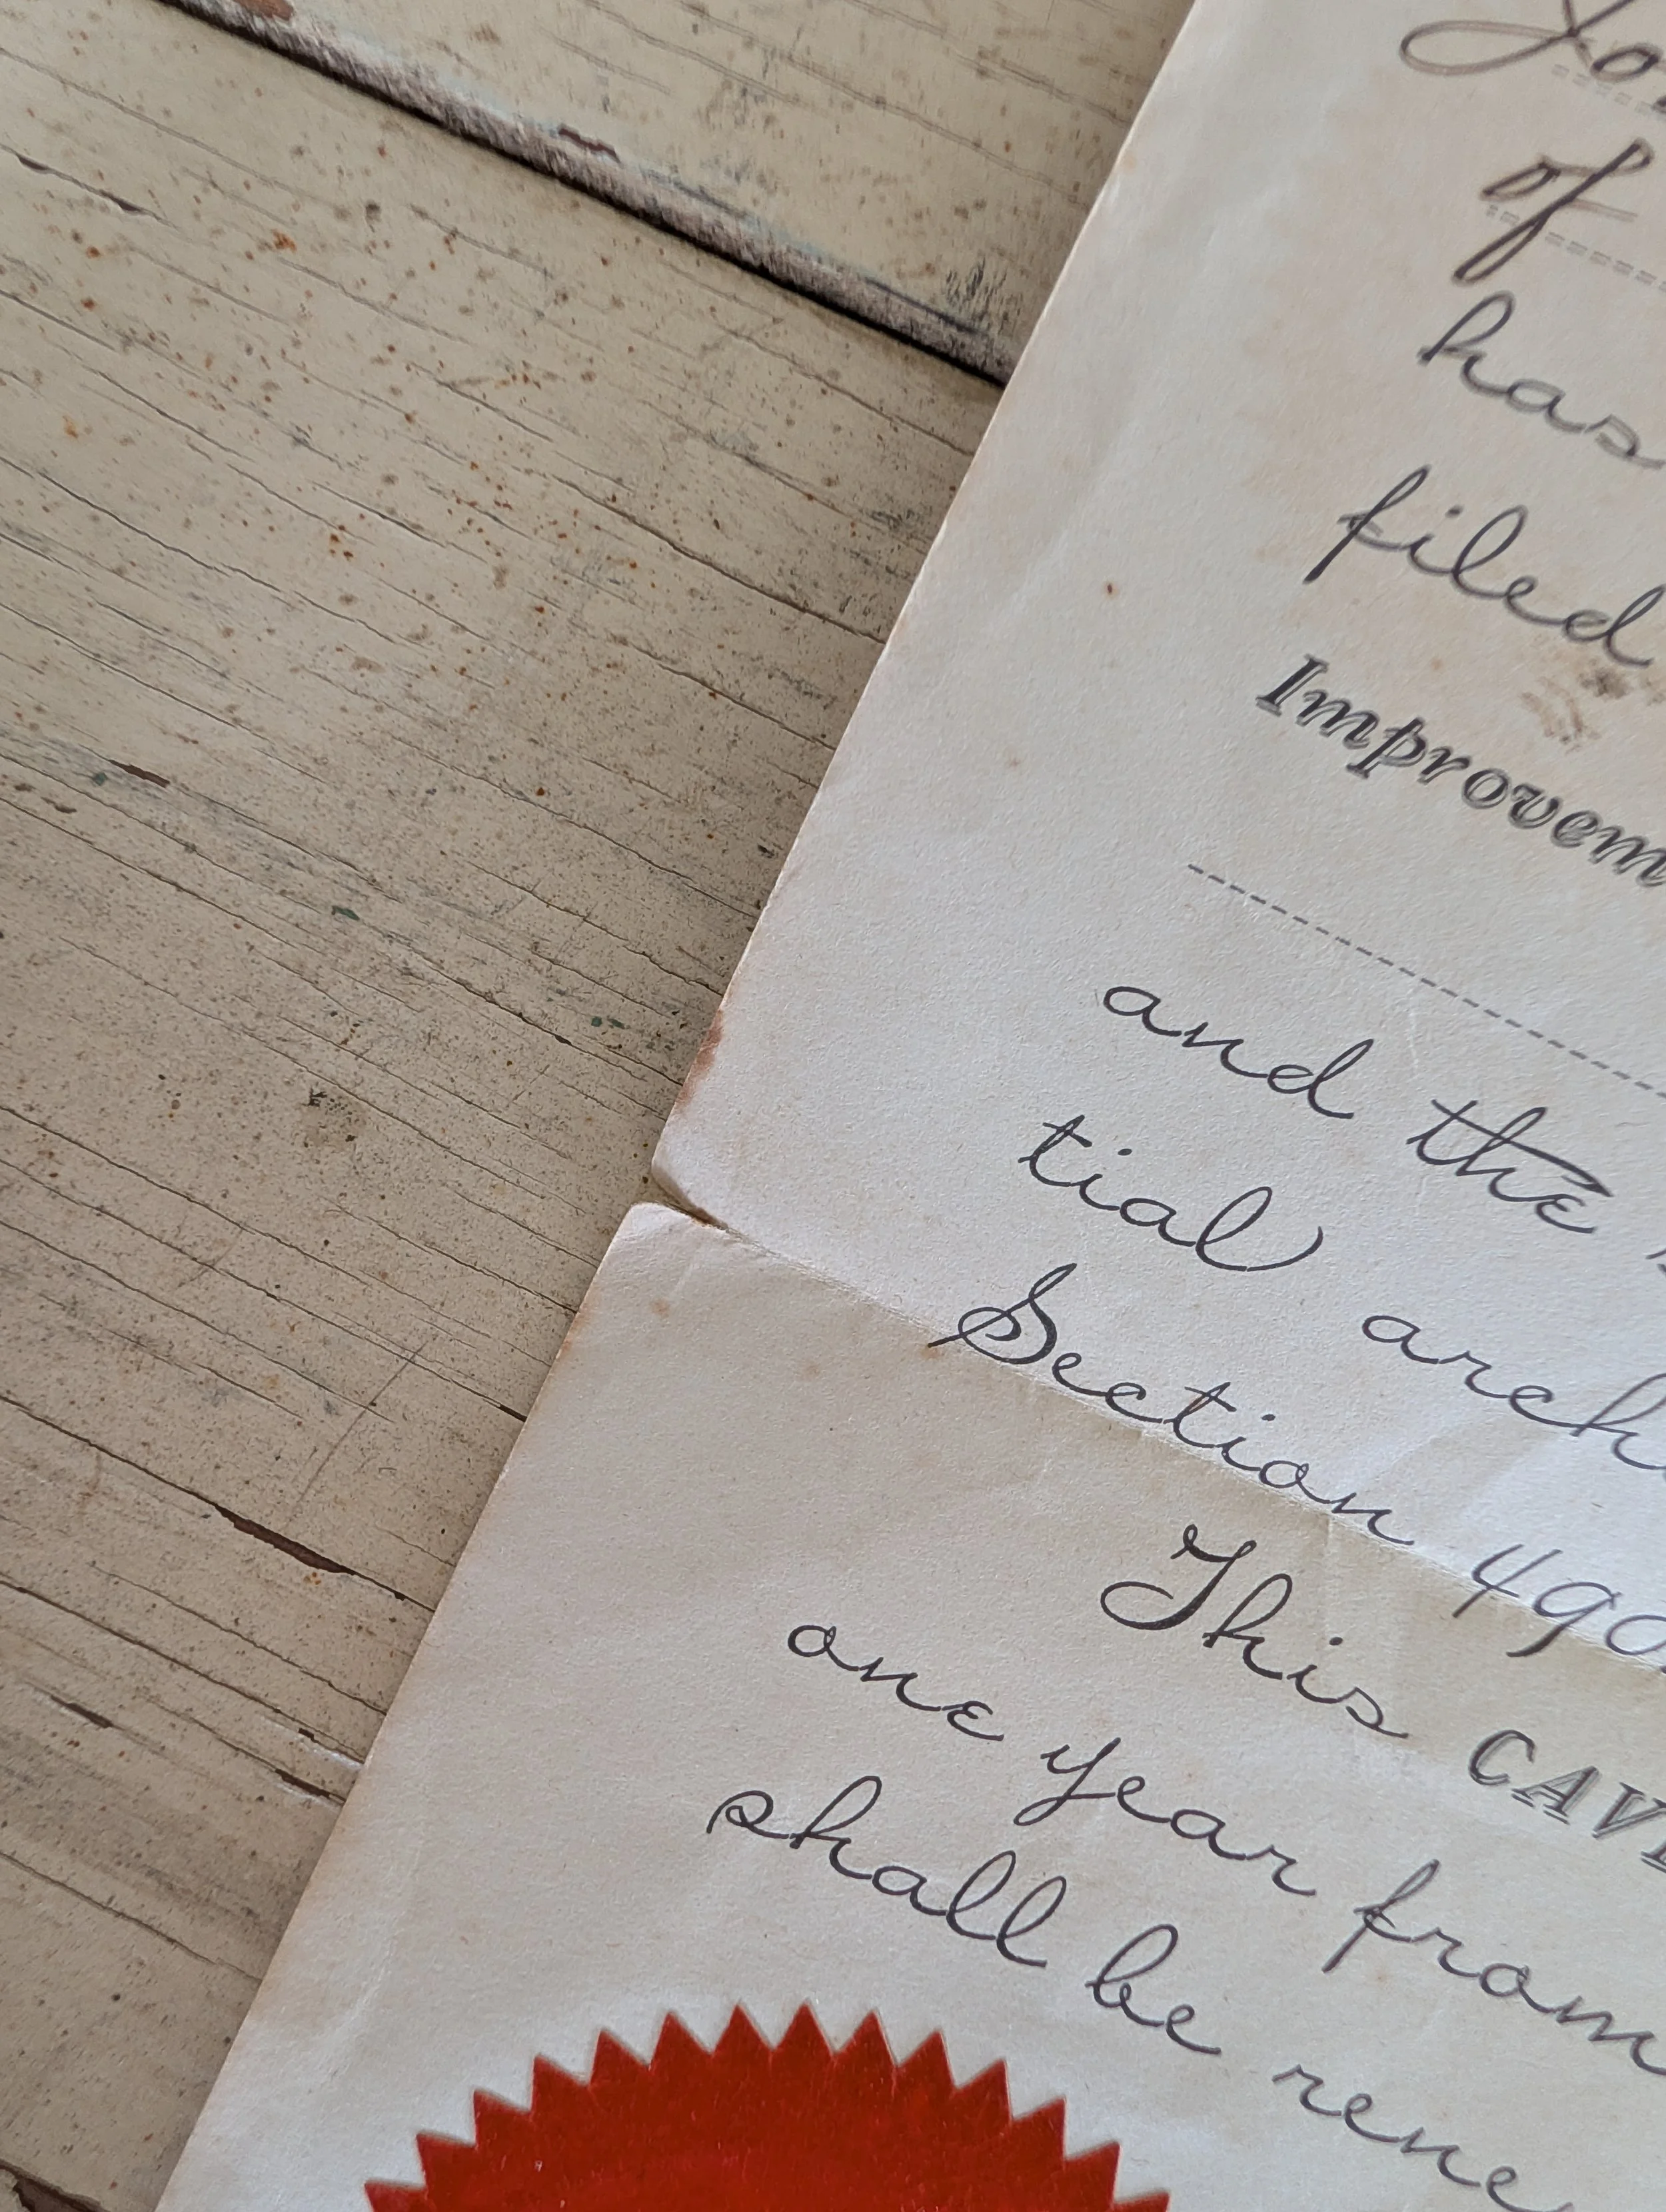 of
has
filed
Improvem
and the
tial arch
Section 490
This CAV
one year from
shall be rene